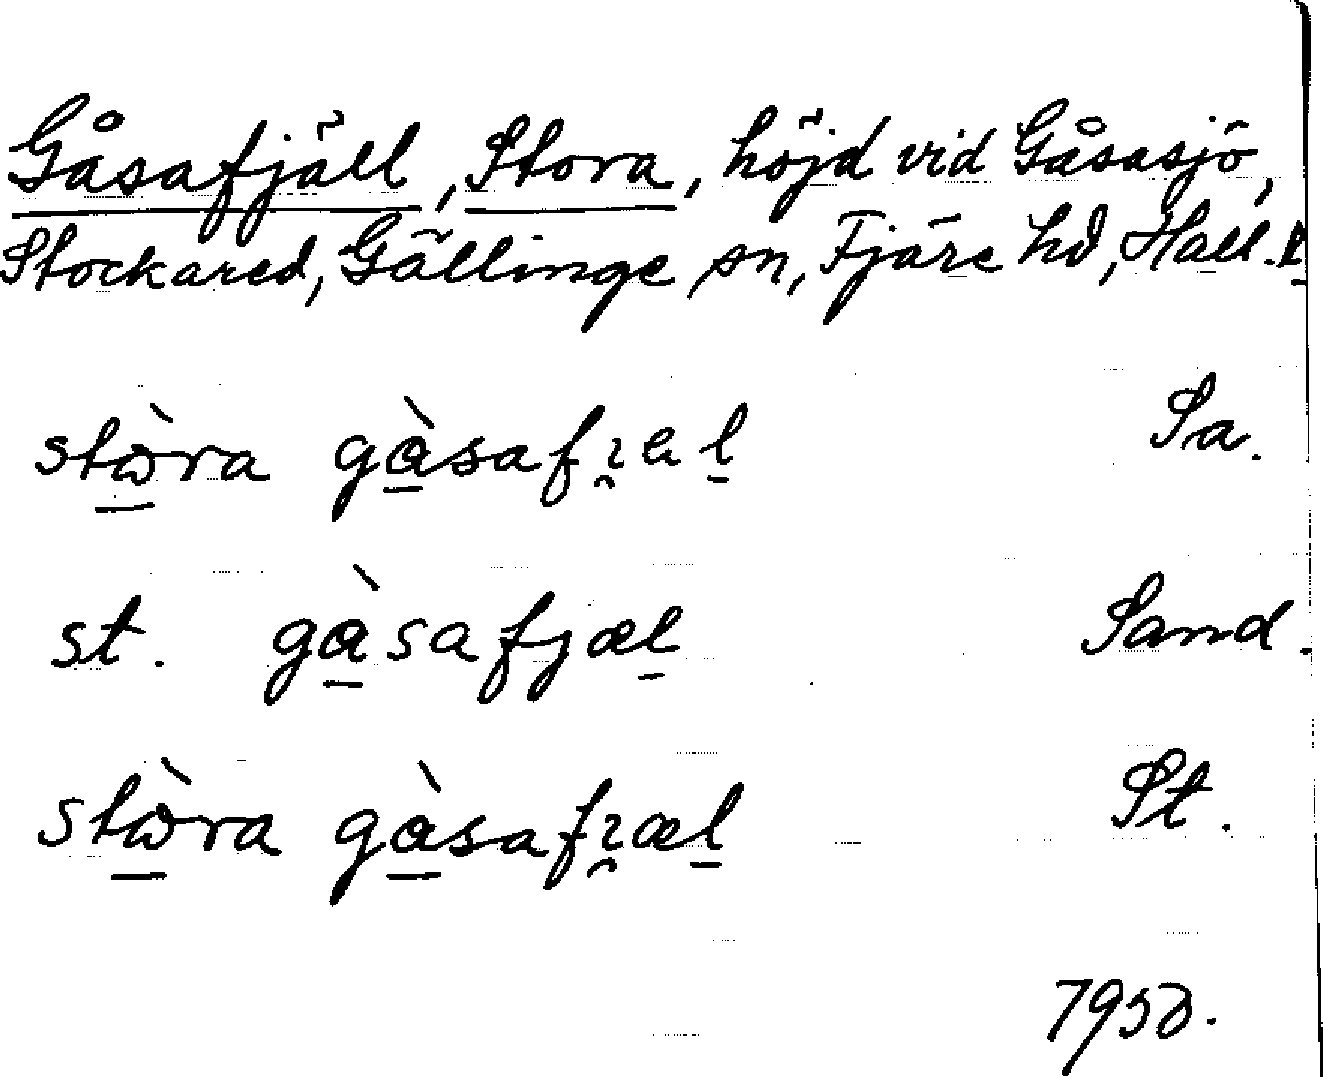 Gåsafjäll, Stora, höjd vid Gåsasjö,
Stockared, Gällinge sn, Fjäre hd, Hall.
stὼ̲ra gɑ̲̀safɿ̯al̲ Sa.
st. gɑ̲̀safjæl̲ Sand.
stὼ̲ra gɑ̲̀safɿ̯æl̲ St.